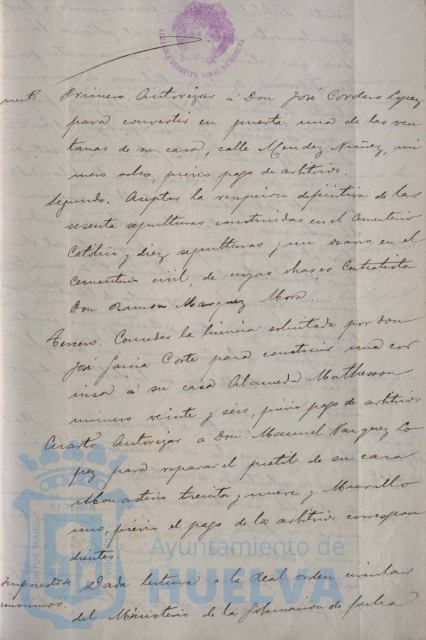 ALCALDIA CONSTITUCIONAL DE HUELVA
Primero. Autorizar á Don José Cordero Lopez
para convertir en puerta una de las ven
tanas de su casa, calle Mendez Nuñez, nú
mero ocho, previo pago de arbitrios.
Segundo. Aceptar la recepcion definitiva de las
sesenta sepulturas construidas en el Cementerio
Católico y diez sepulturas y un osario en el
cementerio civil, de cuyas obras es Contratista
Don Ramon Marquez Mora.
Tercero. Conceder la licencia solicitada por Don
José Garcia Corte para construir una cor
nisa á su casa Alameda Mathesson
número veinte y seis, previo pago de arbitrios
Cuarto Autorizar á Don Manuel Vazquez Lo
pez para reparar el pretil de su casa
Monasterio treinta y nueve y Murillo
uno, previo el pago de los arbitrios correspon
dientes.
Impuesto de
consumos.
Dada lectura á la Real orden circular
del Ministerio de la Gobernacion de fecha
Ayuntamiento de
HUELVA